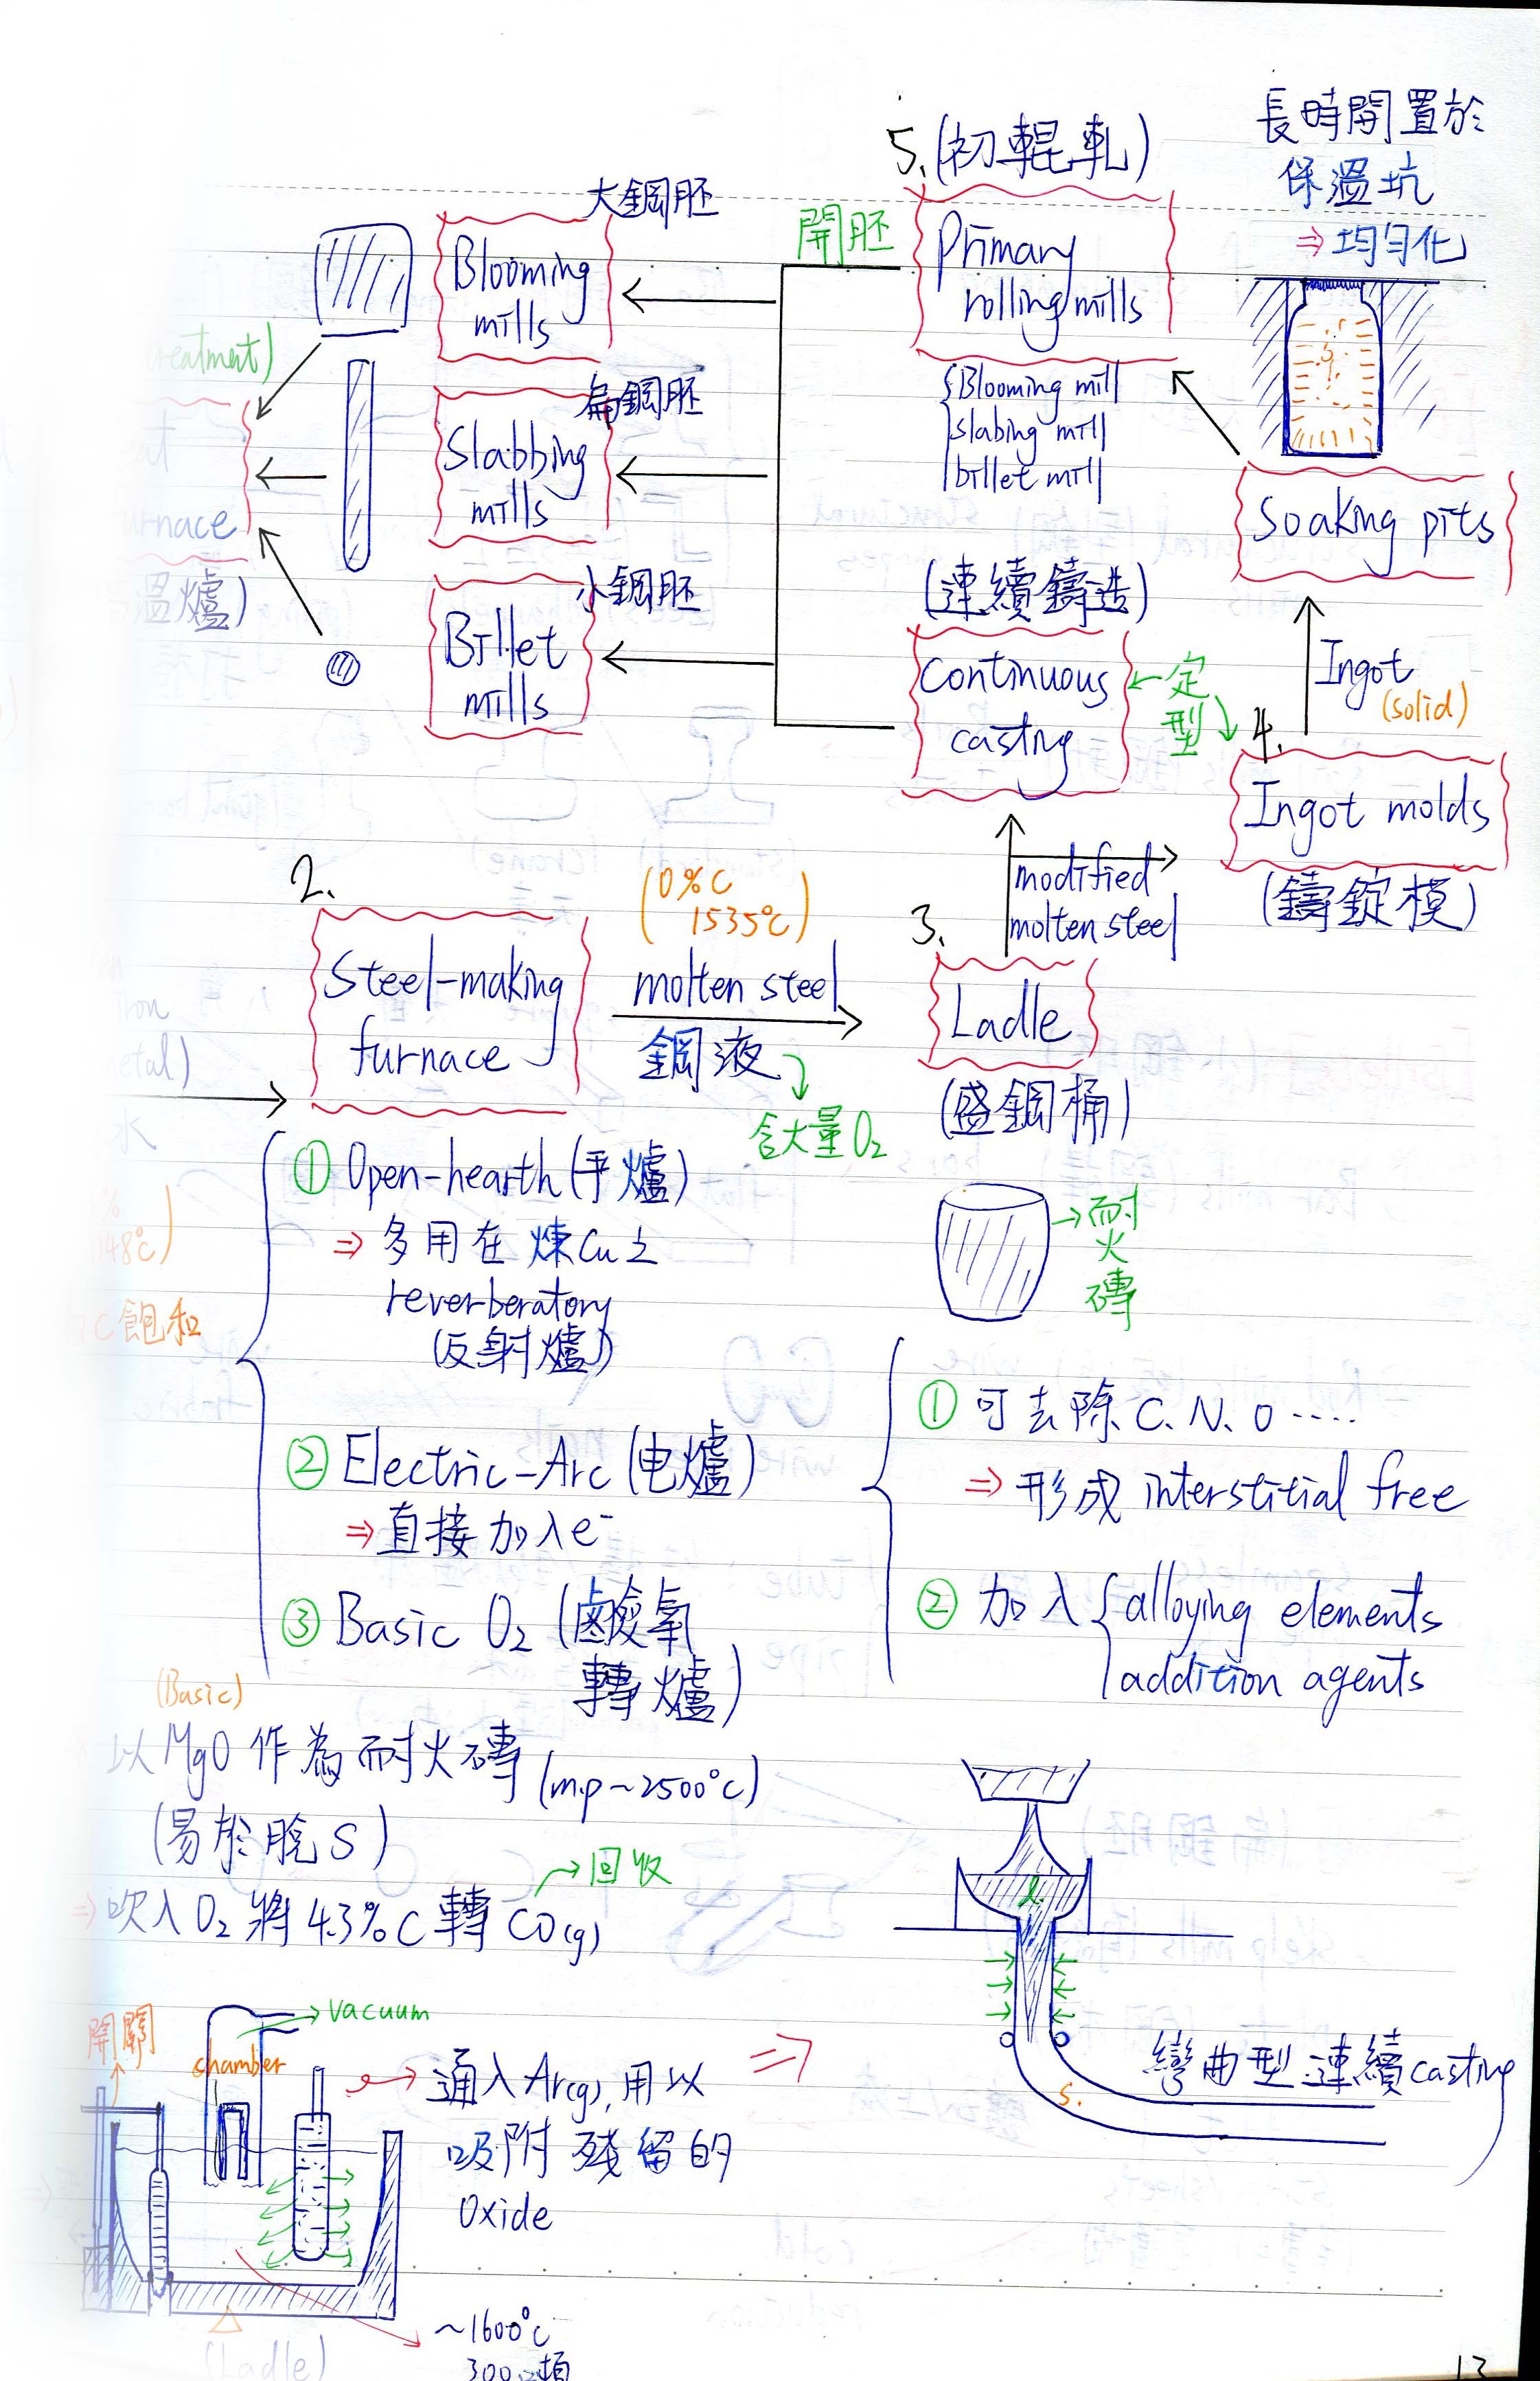 長時間置於
保溫坑
⇒ 均勻化
5. (初輥軋)
Primary
rolling mills
Blooming mill
slabing mill
billet mill
開胚
大鋼胚
Blooming
mills
扁鋼胚
Slabbing
mills
小鋼胚
Billet
mills
Soaking pits
Ingot
(solid)
4.
Ingot molds
(鑄錠模)
(連續鑄造)
Continuous
casting
定
型
modified
molten steel
3.
Ladle
(盛鋼桶)
耐
火
磚
① 可去除 C. N. O ....
⇒ 形成 interstitial free
② 加入 alloying elements
addition agents
2.
Steel-making
furnace
(0%C
1535℃)
molten steel
鋼液
含大量O₂
① Open-hearth (平爐)
⇒ 多用在煉Cu之
reverberatory
(反射爐)
② Electric-Arc (电爐)
⇒ 直接加入e⁻
③ Basic O₂ (鹼氧
轉爐)
(Basic)
以MgO作為耐火磚 (mp~2500℃)
(易於脫S)
⇒ 吹入O₂將4.3%C轉CO(g)
→回收
C飽和
開關
chamber
→vacuum
→ 通入Ar(g), 用以
吸附殘留的
Oxide
~1600℃
300噸
(Ladle)
⇒
l.
s.
彎曲型連續casting
13